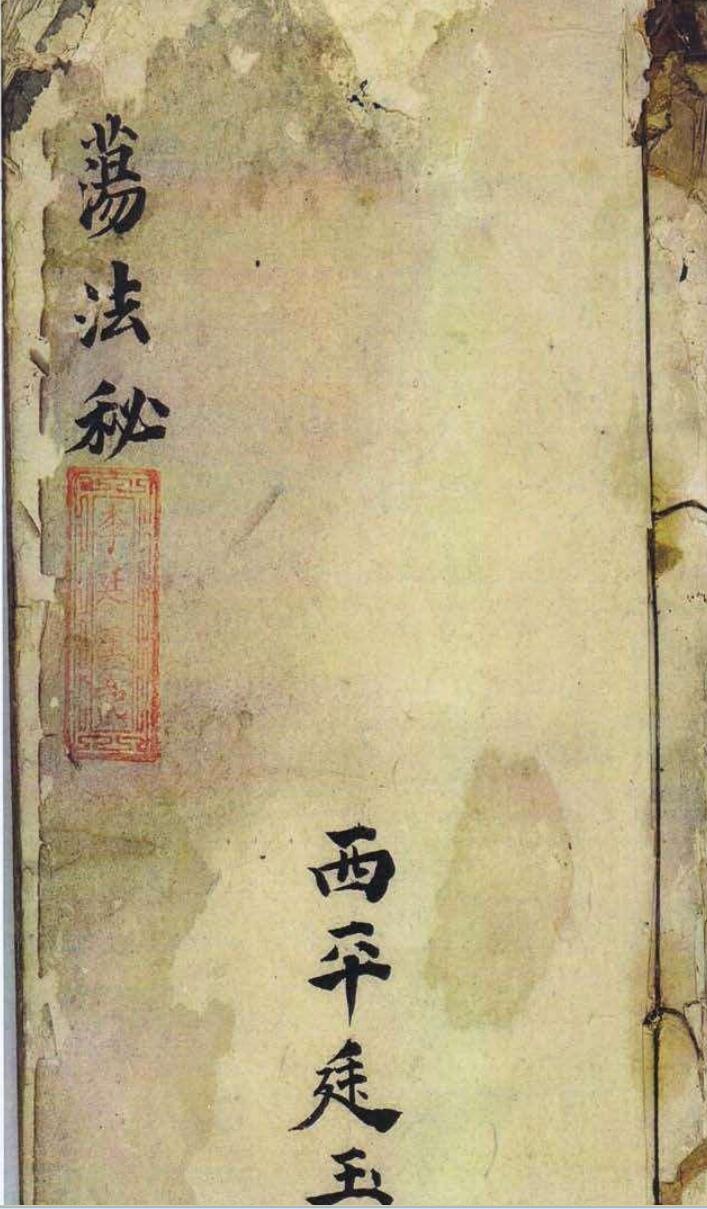 蕩法秘
李廷
西平廷玉